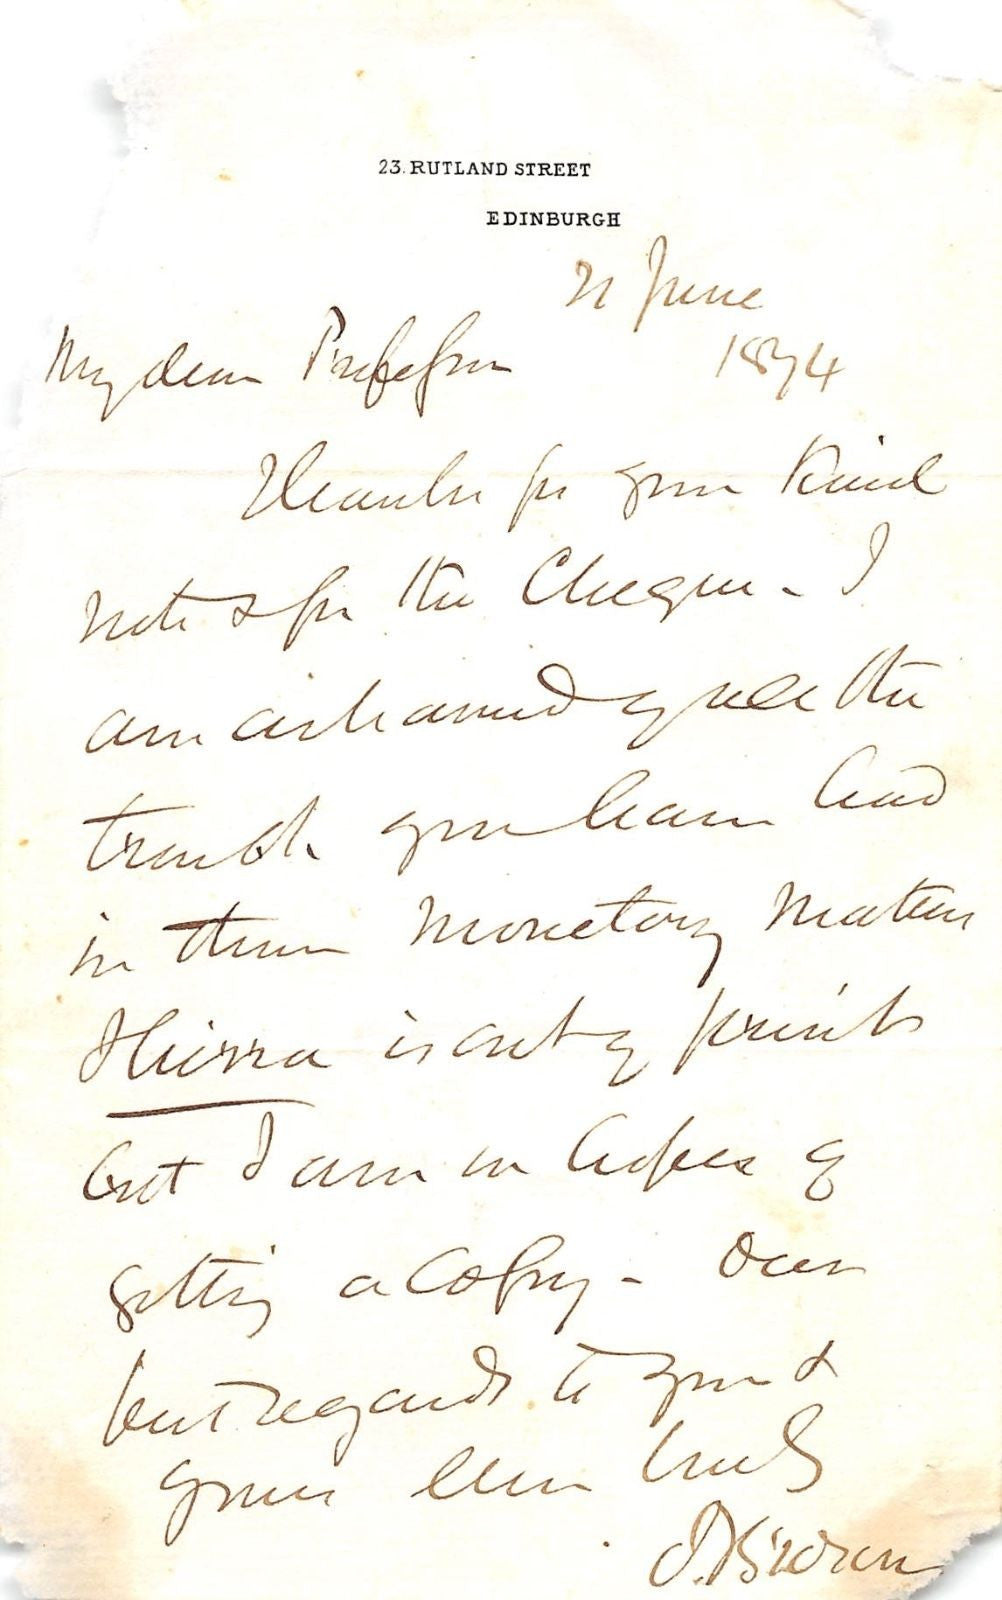 23. RUTLAND STREET
EDINBURGH
21 June
1874
My dear Professor
Thanks for your kind
note & for the Cheque - I
am ashamed of all the
trouble you have had
in these Monetary Matters
is out of print
but I am in hopes of
getting a copy - Our
best regards to you &
yours ever truly
J. Brown